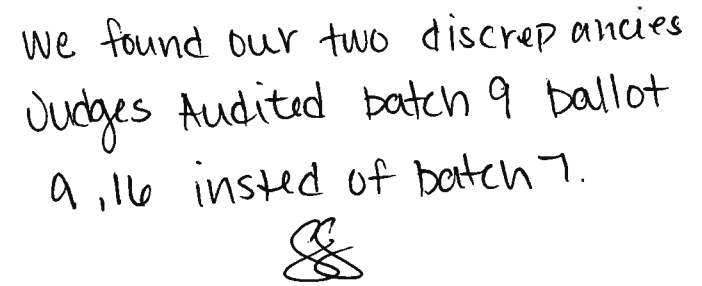 We found our two discrepancies
Judges Audited batch 9 ballot
9, 16 insted of batch 7.